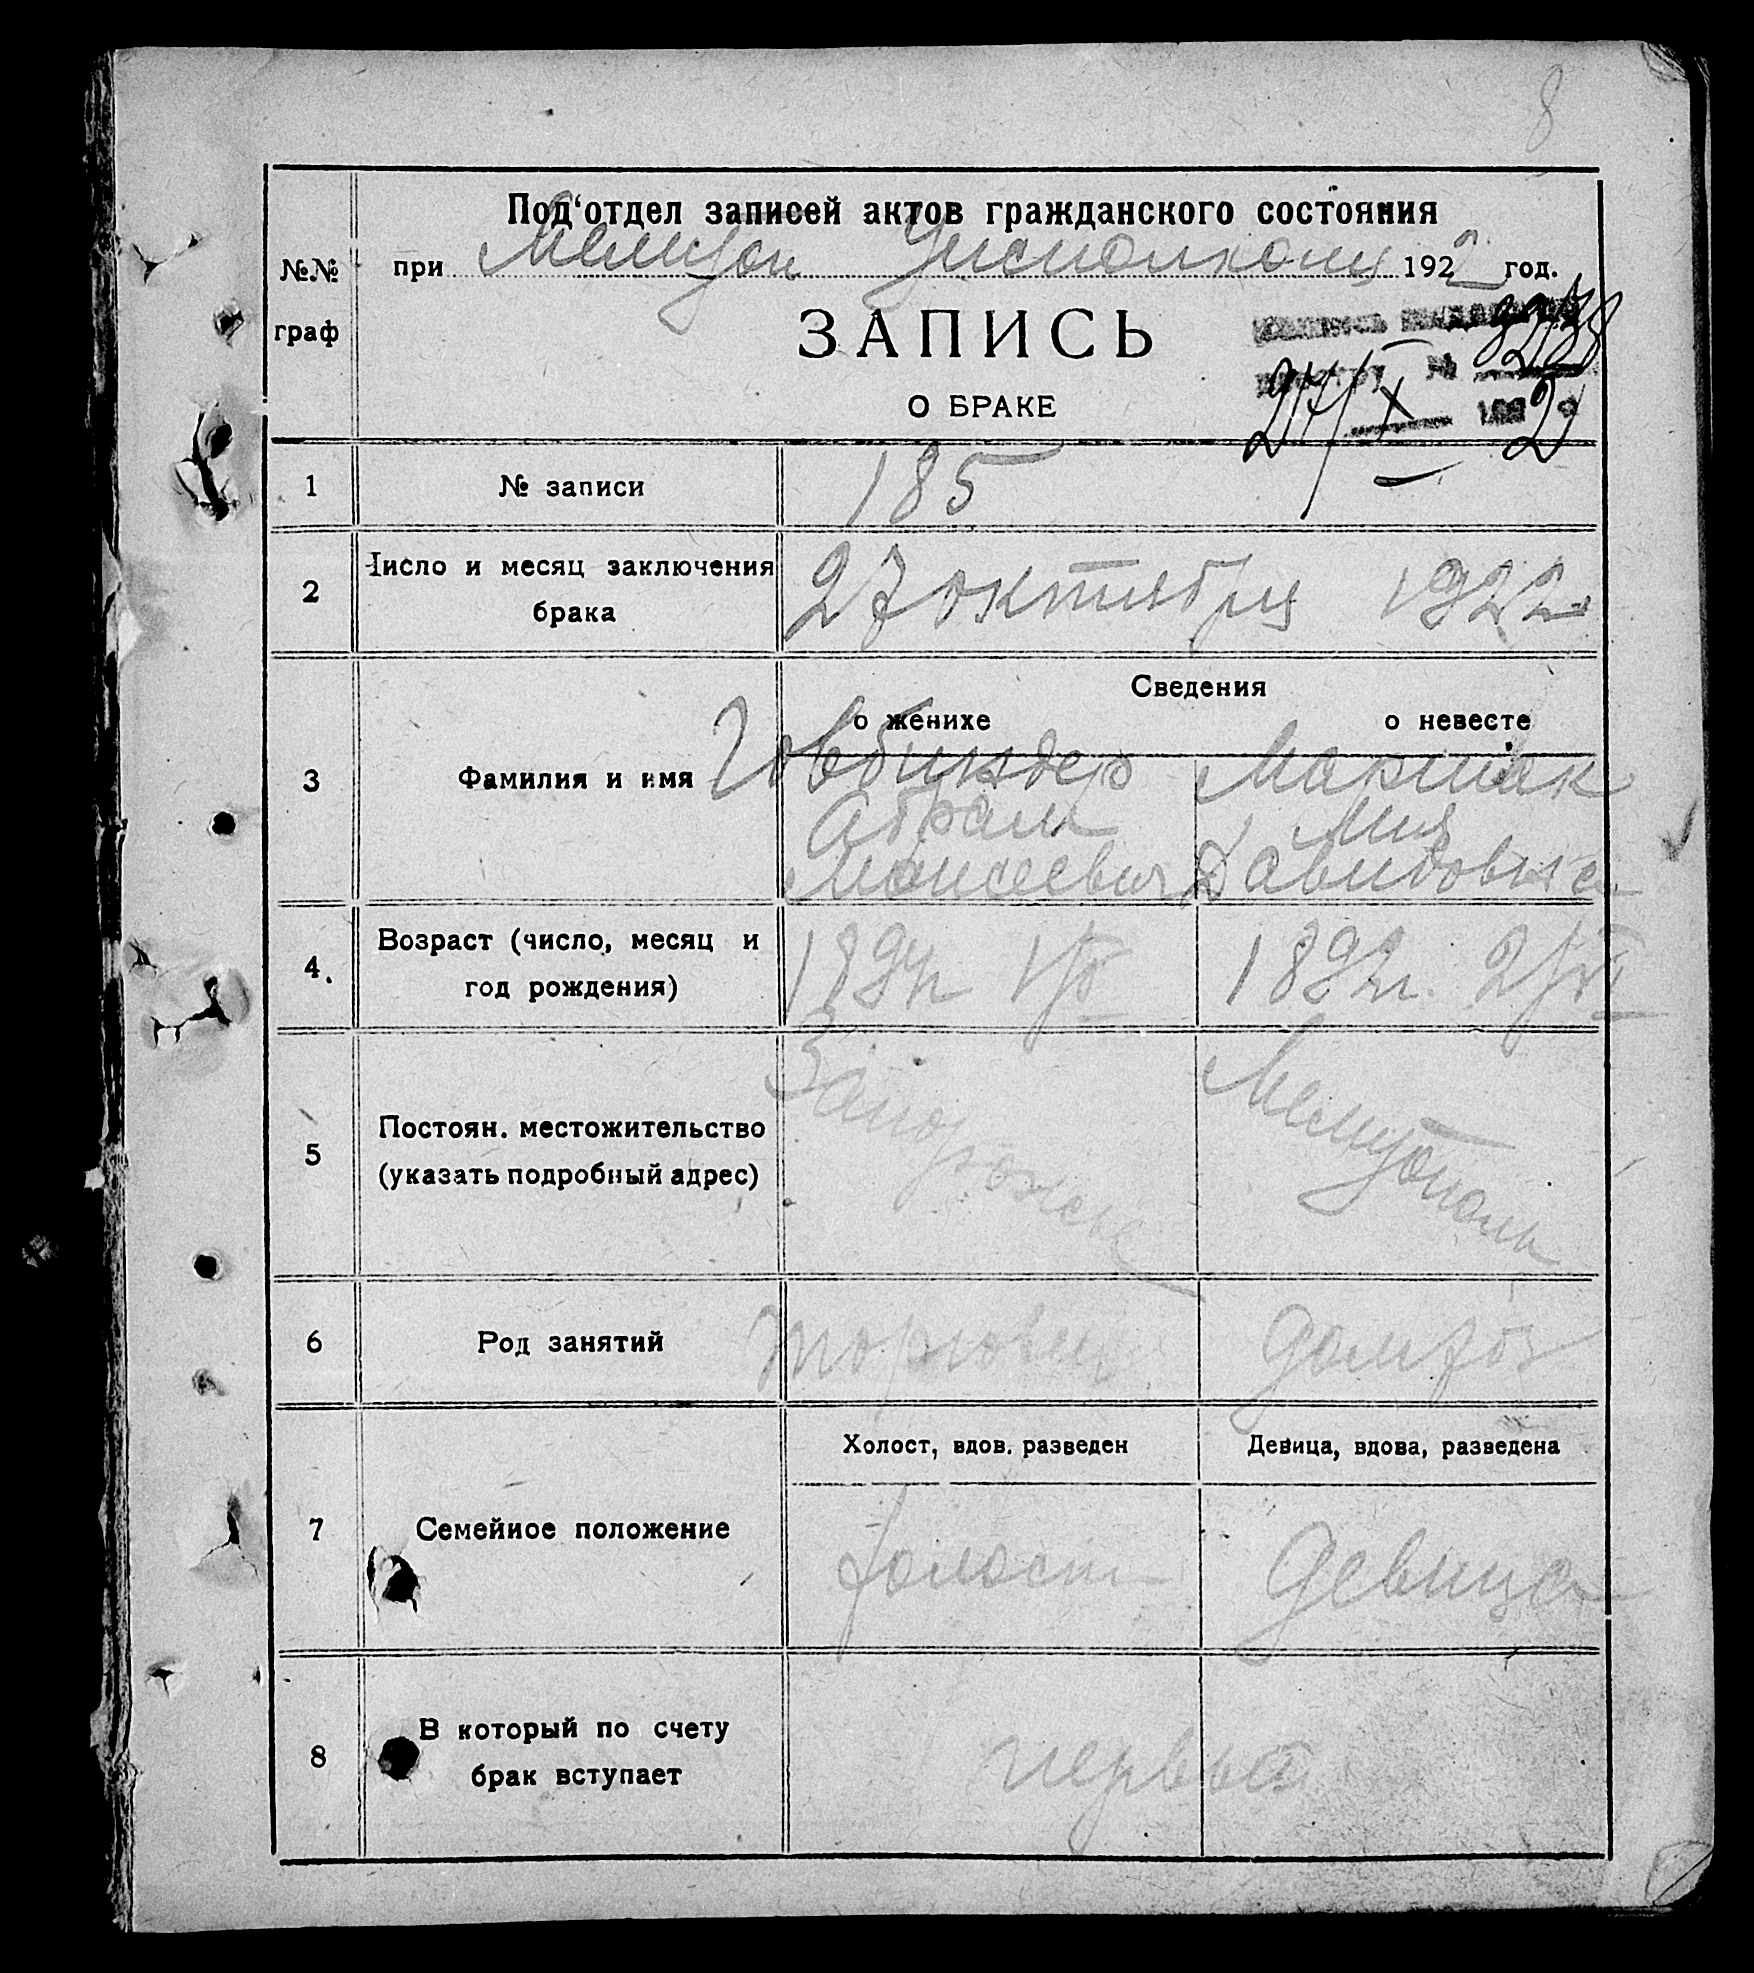 8
Под‘отдел записей актов гражданского состояния
№№ граф
при Мелитоп Уисполкому 1922 год.
ЗАПИСЬ
О БРАКЕ
№
27/X 192 2
1 № записи 185
2 Число и месяц заключения
брака
27 октября 1922
Сведения
о женихе о невесте
3 Фамилия и имя
Говбиндер Маршак
Абрам Мия
Моисеевич Давидовна
4. Возраст (число, месяц и
год рождения)
1892г. 2/VI
5 Постоян. местожительство
(указать подробный адрес)
Запорожье Мелитополь
6 Род занятий торговец домхоз
Холост, вдов. разведен Девица, вдова, разведена
7 Семейное положение холост девица
8 В который по счету
брак вступает
первый